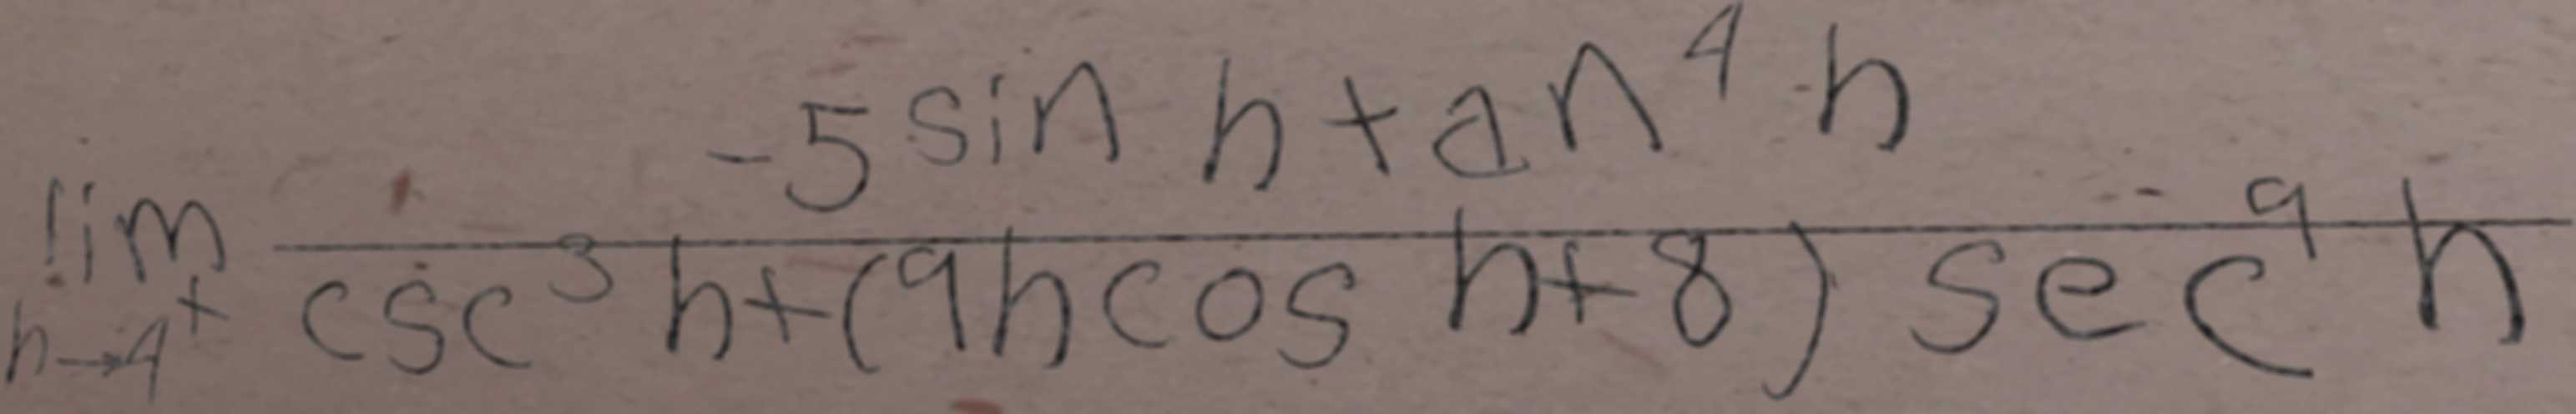 \lim_{h \to 4^+} \frac{-5 \sin h \tan^4 h}{\csc^3 h + (9h \cos h + 8) \sec^9 h}